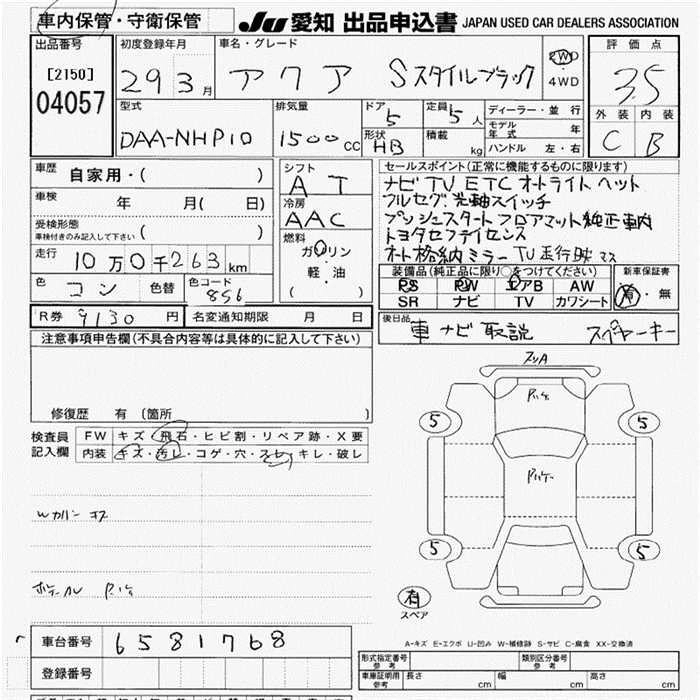 車内保管・守衛保管
JU 愛知 出品申込書 JAPAN USED CAR DEALERS ASSOCIATION
出品番号
[2150]
04057
初度登録年月
29 3月
車名・グレード
アクア Sスタイルブラック
2WD
・
4WD
評価点
3.5
外装 内装
C B
型式
DAA-NHP10
排気量
1500cc
ドア
5
定員
5人
形状
HB
積載
kg
ディーラー・並行
モデル年式 年
ハンドル 左・右
車歴 自家用・( )
車検 年 月( 日)
受検形態
車検付きのみ記入して下さい ( )
走行 10万0千263km
色 コン 色替 色コード 856
シフト
AT
冷房
AAC
燃料
ガソリン
軽・油
( )
セールスポイント(正常に機能するものに限ります)
ナビ TV ETC オートライト ヘット
フルセグ 光軸スイッチ
プッシュスタート フロアマット 純正車内
トヨタセフティセンス
オート格納ミラー TV走行映
装備品(純正品に限り○をつけてください)
PS PW エアB AW
SR ナビ TV カワシート
新車保証書
有・無
R券 9130円 名変通知期限 月 日
後日品
車 ナビ 取説 スペヤーキー
注意事項申告欄(不具合内容等は具体的に記入して下さい)
修復歴 有 (箇所 )
検査員記入欄
FW キズ・飛石・ヒビ割・リペア跡・X要
内装 キズ・汚レ・コゲ・穴・スレ・キレ・破レ
スリA
5
5
5
5
有
スペア
車台番号 6581768
登録番号
A-キズ E-エクボ U-凹み W-補修跡 S-サビ C-腐食 XX-交換済
形式指定番号 参考
類別区分番号 参考
車庫証明用 参考 長さ cm 幅 cm 高さ cm